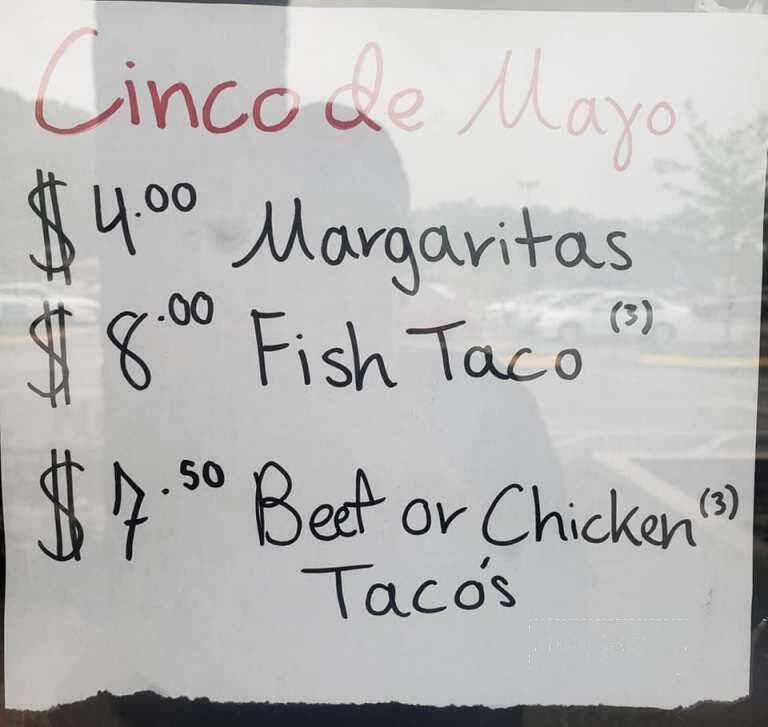 Cinco de Mayo
$4.00 Margaritas
$8.00 Fish Taco (3)
$7.50 Beef or Chicken (3)
Taco's